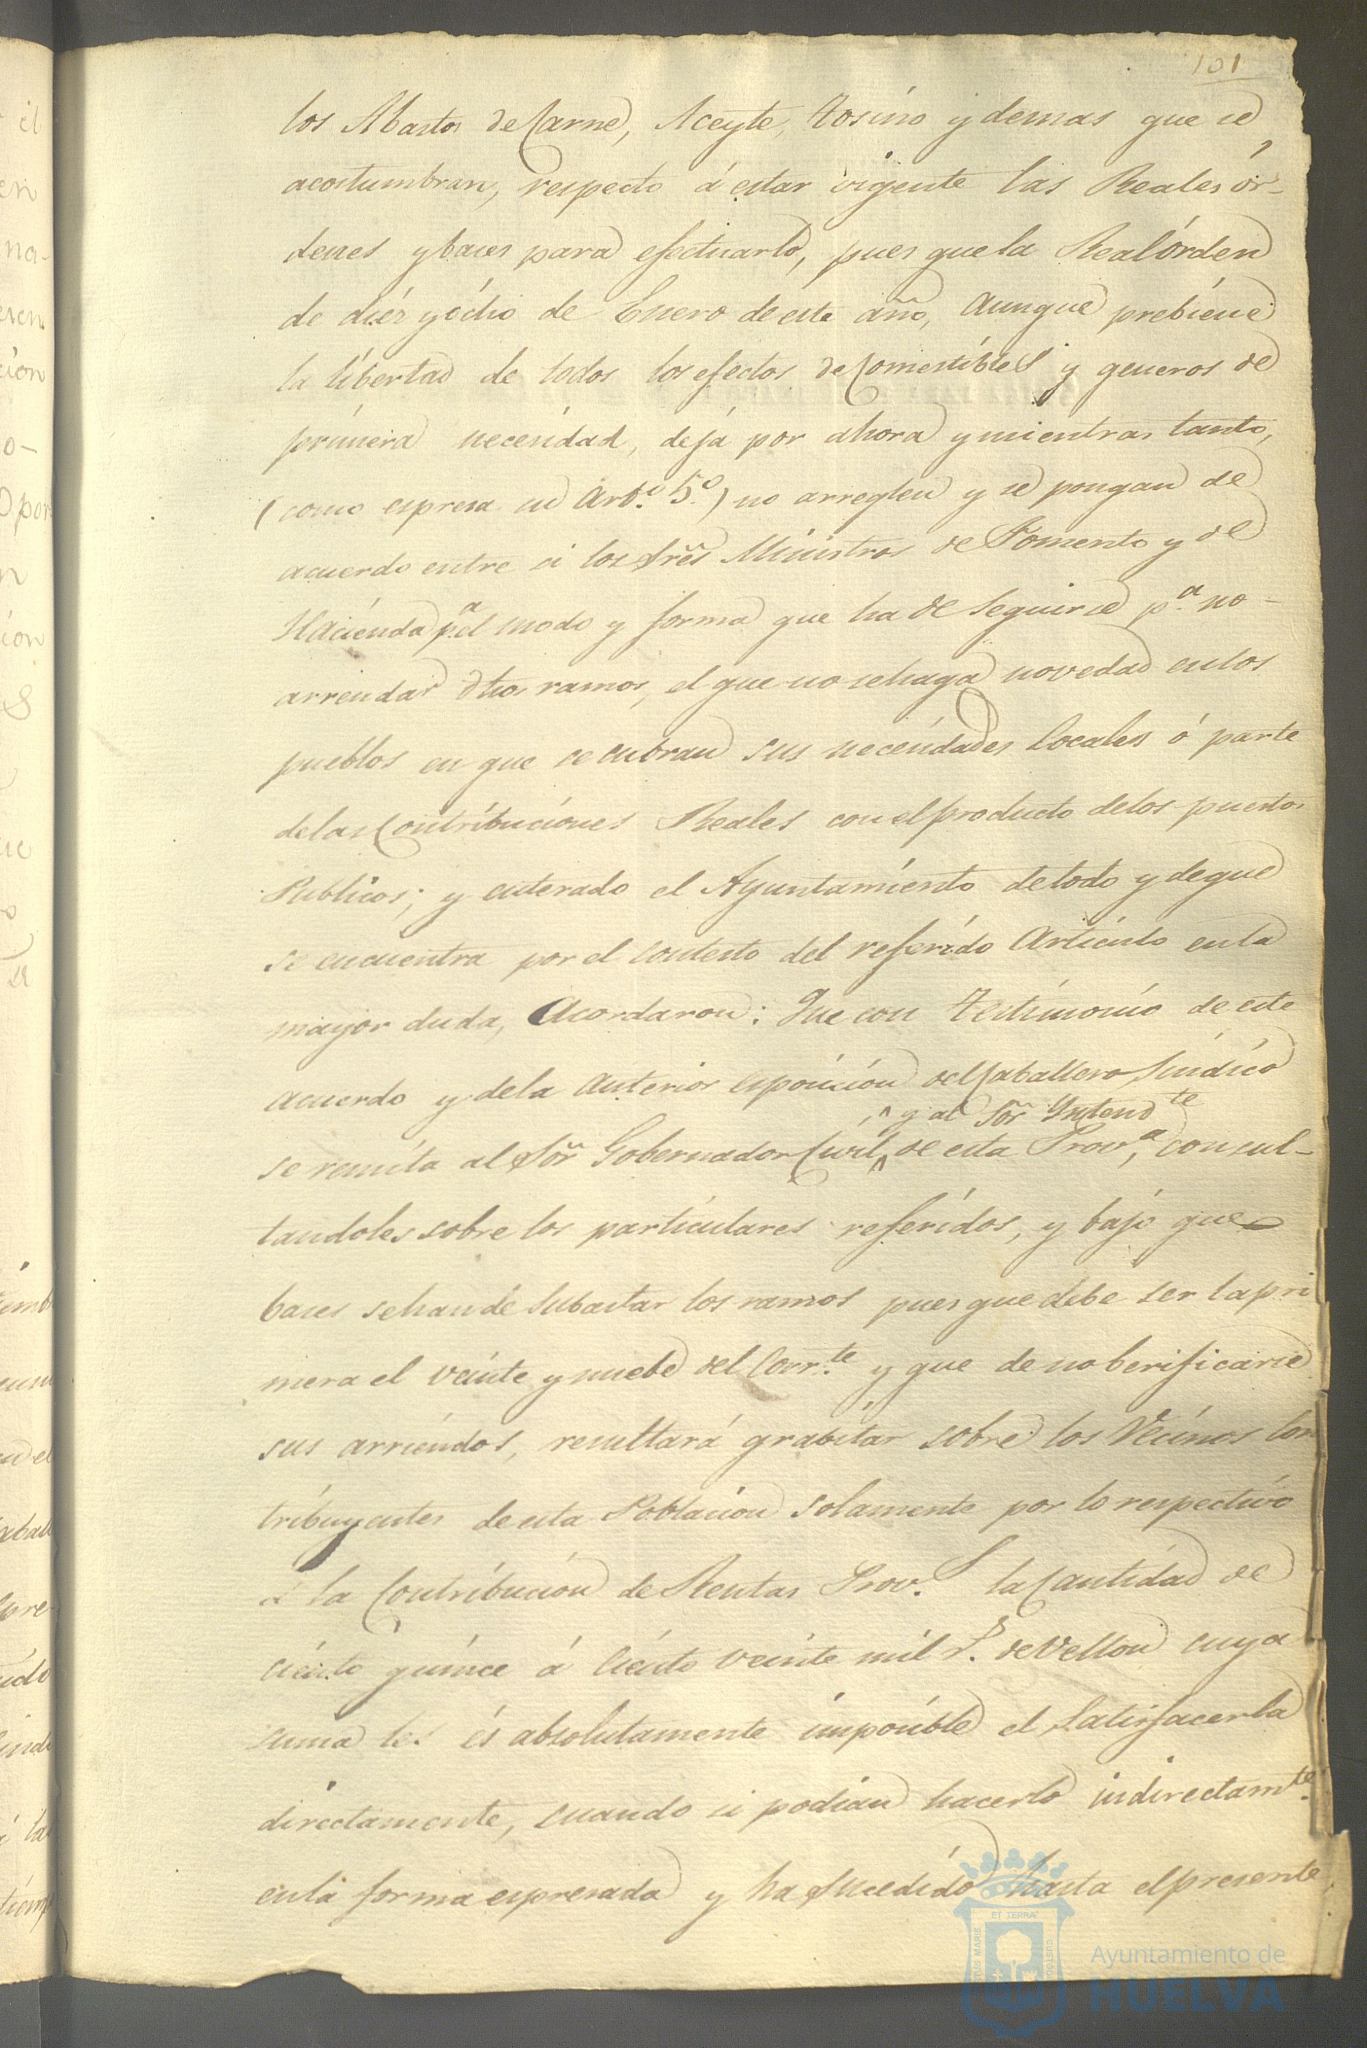 101
los Abastos de Carne, Aceyte, tosino y demas que se
acostumbran, respecto á estar vigente las Reales ór-
denes y bases para efectuarlo, pues que la Real órden
de diés y ócho de Enero de este año, aunque prebiene
la libertad de todos los efectos de Comestibles y generos de
primera necesidad, deja por ahora y mientras tanto,
(como espresa su Arto. 5.º) no arreglen y se pongan de
acuerdo entre si los Sres Ministros de Fomento y de
Hacienda pa. el modo y forma que ha de seguirse pa. no-
arrendar dhos ramos, el que no se haga novedad en los
pueblos en que se cubran sus necesidades locales ó parte
de las Contribuciones Reales con el producto de los puestos
Publicos; y enterado el Ayuntamiento de todo y de que
se encuentra por el contesto del referido Articulo en la
mayor duda, Acordaron: Que con testimonio de este
acuerdo y de la anterior esposicion del Caballero Sindico
y al Sor Intendte
se remita al Sor Gobernador Civil, de esta Prova, consul-
tandoles sobre los particulares referidos, y bajo que
bases se han de subastar los ramos pues que debe ser la pri
mera el veinte y nuebe del Corrte. y que de no berificarse
sus arriendos, resultará grabitar sobre los Vecinos Con
tribuyentes de esta Poblacion solamente por lo respectivo
á la Contribucion de Rentas Provs. la Cantidad de
ciento quince á ciento veinte mil rs. de Vellon cuya
suma les és absolutamente imposible el satisfacerla
directamente, cuando si podian hacerlo indirectamte.
en la forma espresada y ha sucedido hasta el presente
Ayuntamiento de
HUELVA